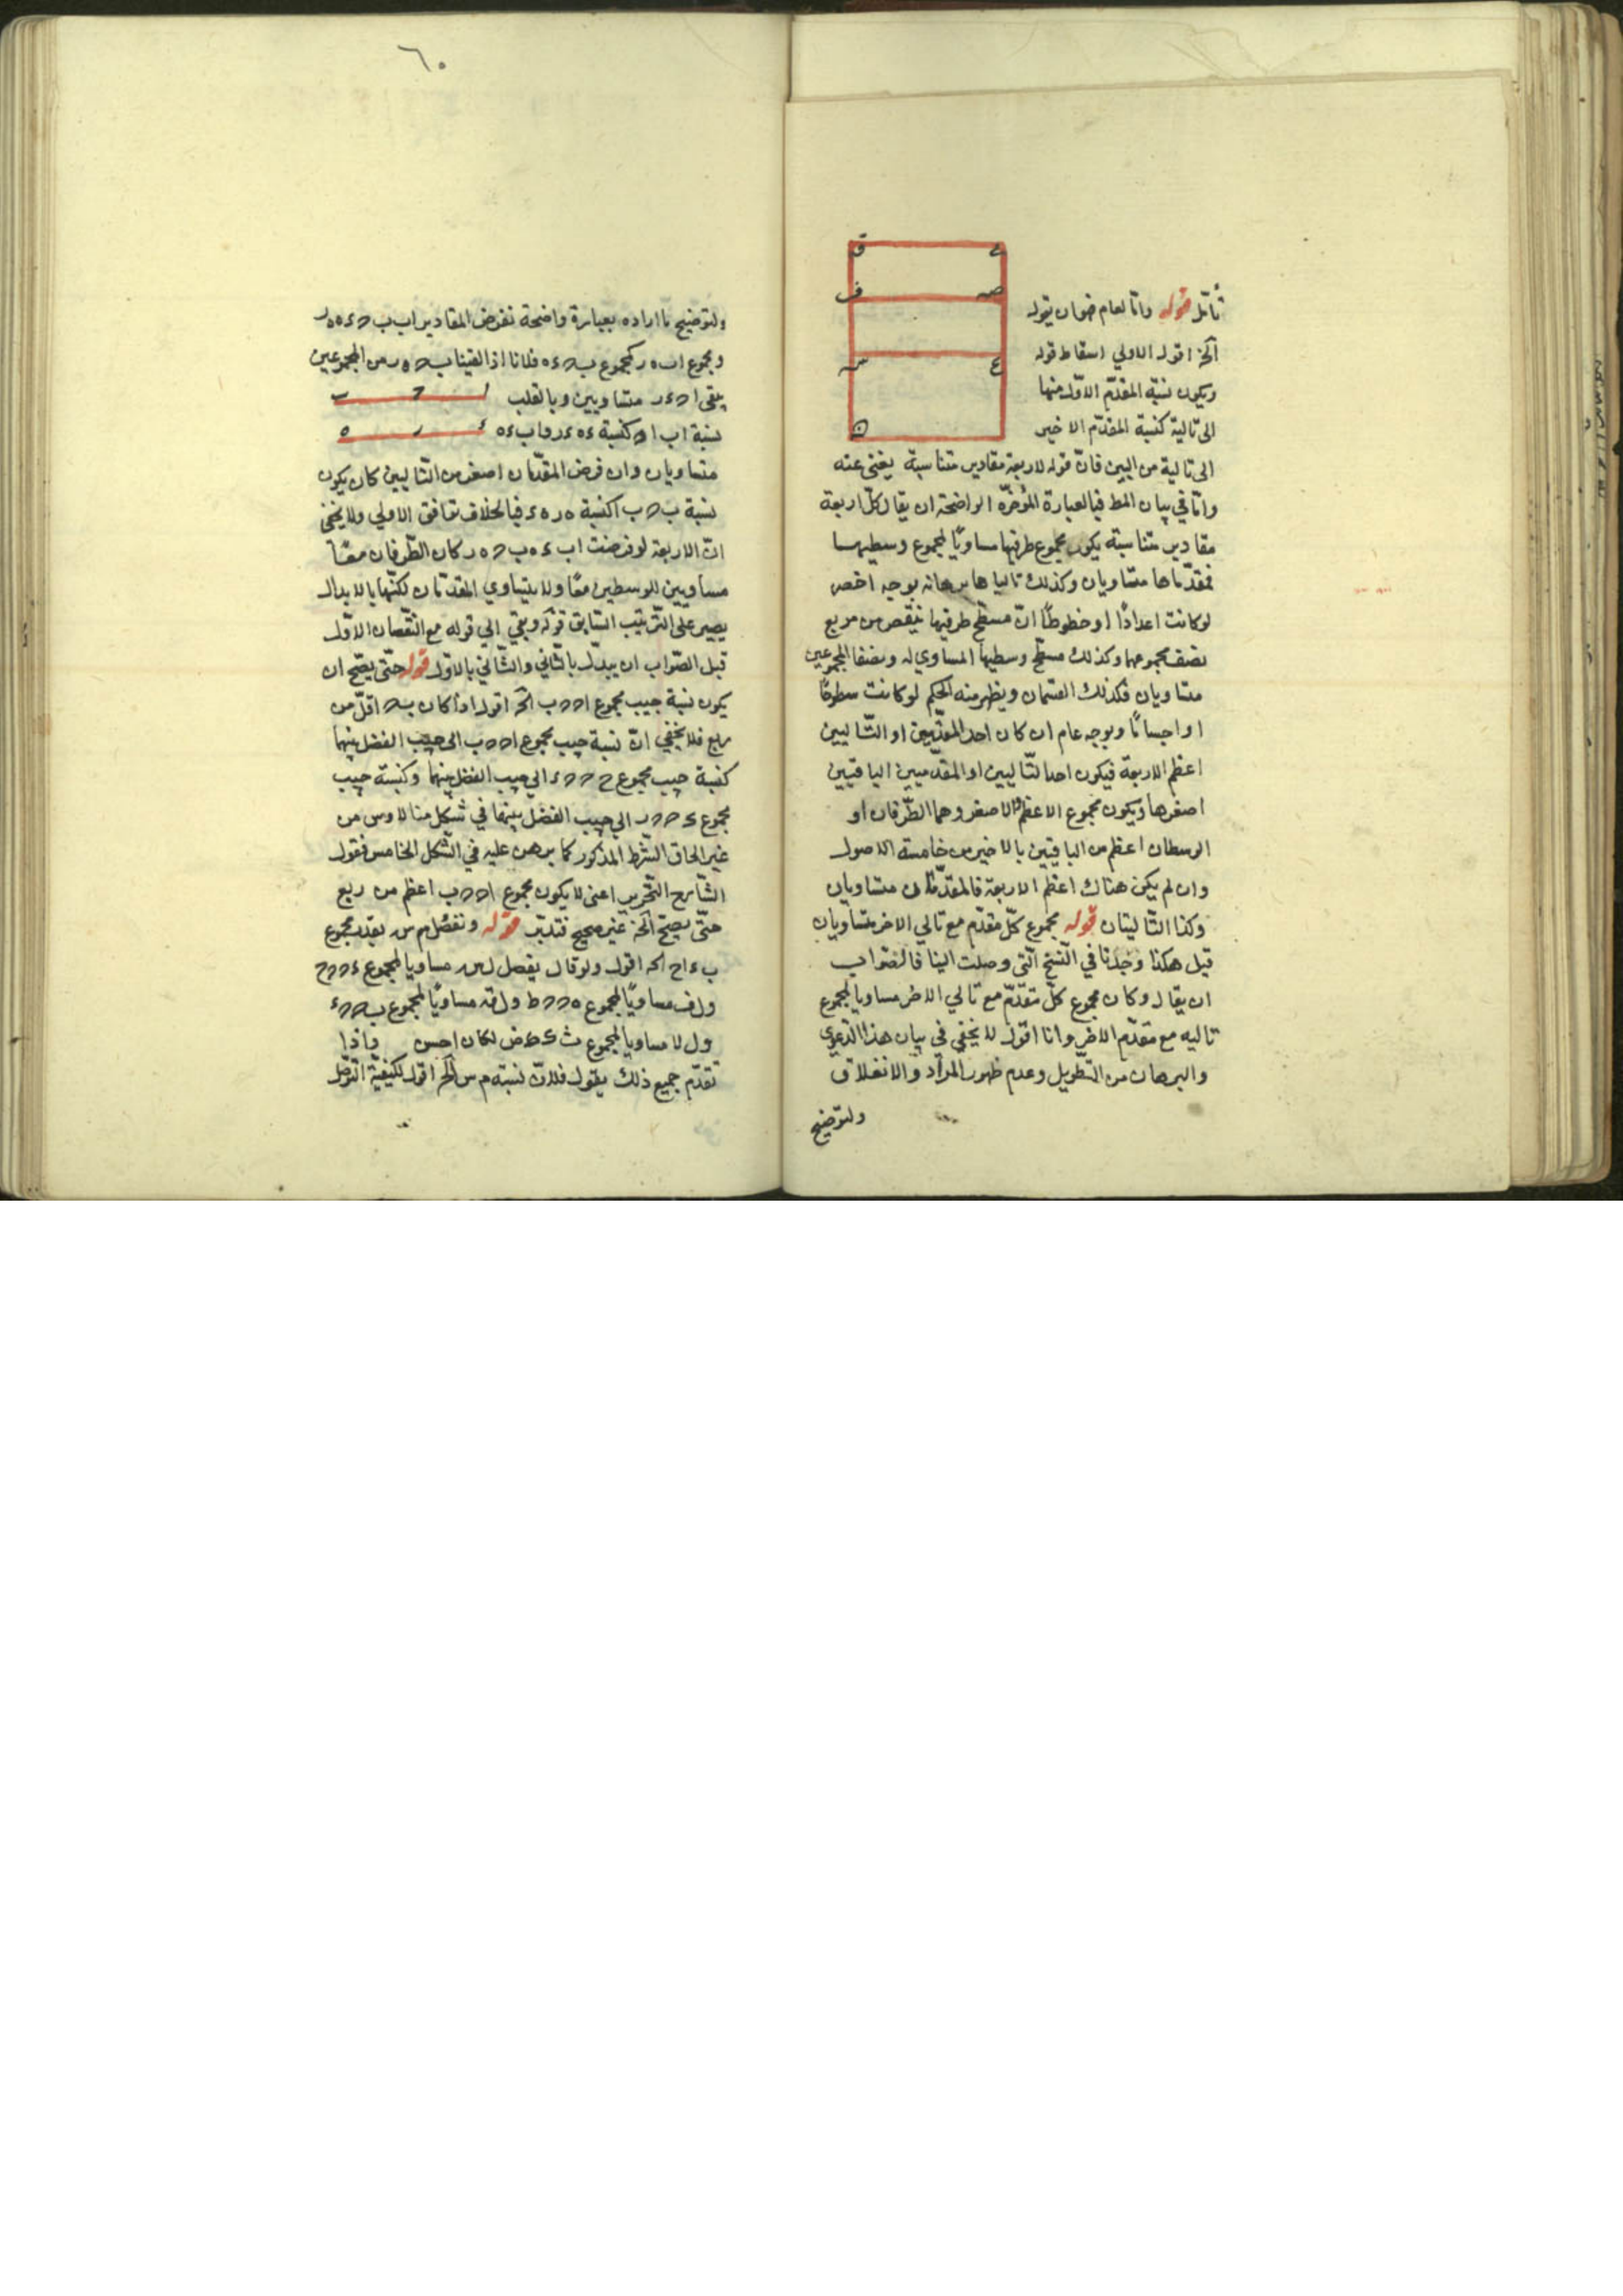 تأمل قوله واما العام فهو ان يقول
آلخ اقول الاولي اسقاط قوله
ويكون نسبة المقدّم الاوّل منها
الى تالية كنسبة المقدّم الاخير
الى تالية من البين فانّ قوله لاربعة مقادير متناسبة يغني عنه
وامّا في بيان المط فبالعبارة الموخرّه الواضحة ان يقال كلّ اربعة
مقادير متناسبة يكون مجموع طرفيها مساويًا لمجموع وسطيهما
فمقدّماها متساويان وكذلك تالياها برهانه بوجه اخص
لوكانت اعدادًا او خطوطًا انّ مسطّح طرفيها ينقص من مربع
نصف مجموعهما وكذلك مسطّح وسطيها المساوي له ونصفا المجموعين
متساويان فكذلك القسمان ويظهر منه الحكم لوكانت سطوحًا
او اجسامًا وبوجه عام ان كان احد المقدّمين او التّاليين
اعظم الاربعة فيكون احد التّاليين او المقدّمين الباقيين
اصغرها ويكون مجموع الاعظم والاصغر وهما الطّرفان او
الوسطان اعظم من الباقيين بالاخير من خامسة الاصول
وان لم يكن هناك اعظم الاربعة فالمقدّمان متساويان
وكذا التّاليتان قوله مجموع كلّ مقدّم مع تالي الاخر متساويان
قيل هكذا وجدنا في النّسخ الّتي وصلت الينا فالصّواب
ان يقال وكان مجموع كلّ مقدّم مع تالي الاخر مساويا لمجموع
تاليه مع مقدّم الاخر وانا اقول لا يخفي في بيان هذا الدّعوي
والبرهان من التّطويل وعدم ظهور المراد والانغلاق
ولتوضيح
ق
ف
صه
ع
سه
ن
٦٠
ولتوضيح ما اراده بعبارة واضحة نفرض المقادير اب ب ح ء ه ه ر
ومجموع اب ه ر كمجموع ب ح ء ه فلانا اذا القينا ب ح ه ر من المجموعين
يبقى ا ح ء ر متساويين وبالقلب
نسبة اب ا ح كنسبة ء ه ء ر و اب ء ه
ا ح ب
ء ر ه
متساويان وان فرض المقدّمان اصغر من التّاليين كان يكون
نسبة ب ح ب ا كنسبة ه ر ه ء فبالخلاف توافق الاولي ولا يخفى
انّ الاربعة لو فرضت اب ء ه ب ح ه ر كان الطّرفان معًا
مساويين للوسطين معًا ولا يتساوي المقدّمان لكنّها بالابدال
يصير على التّرتيب السّابق قوله وبقي الي قوله مع النّقصان الاوّل
قيل الصّواب ان يبدّل بالثّاني والثّاني بالاوّل قوله حتّى يصّح ان
يكون نسبة جيب مجموع ا ح ح ب آلخ اقول اذا كان ب ح اقلّ من
ربع فلا يخفي انّ نسبة جيب مجموع ا ح ح ب الى جيب الفضل بينهما
كنسبة جيب مجموع ح ح ء الي جيب الفضل بينهما وكنسبة جيب
مجموع ح ر الي جيب الفضل بينهما في شكل منالاوس من
غير الحاق الشّرط المذكور كما برهن عليه في الشّكل الخامس فقول
الشّارح التّحرير اعني لا يكون مجموع ا ح ح ب اعظم من ربع
حتّى يصّح آلخ غير صحيح فتدبّر قوله ونفصّل م س بقدر مجموع
ب ء ا ح آلخ اقول ولو قال يفصل ل س مساويا لمجموع
ول ف مساويًا لمجموع ول ق مساويًا لمجموع
ول لا مساويا لمجموع لكان احسن فاذا
تقدّم جميع ذلك يقول فلانّ نسبة م س آلخ اقول لكيفيّة التّوصّل